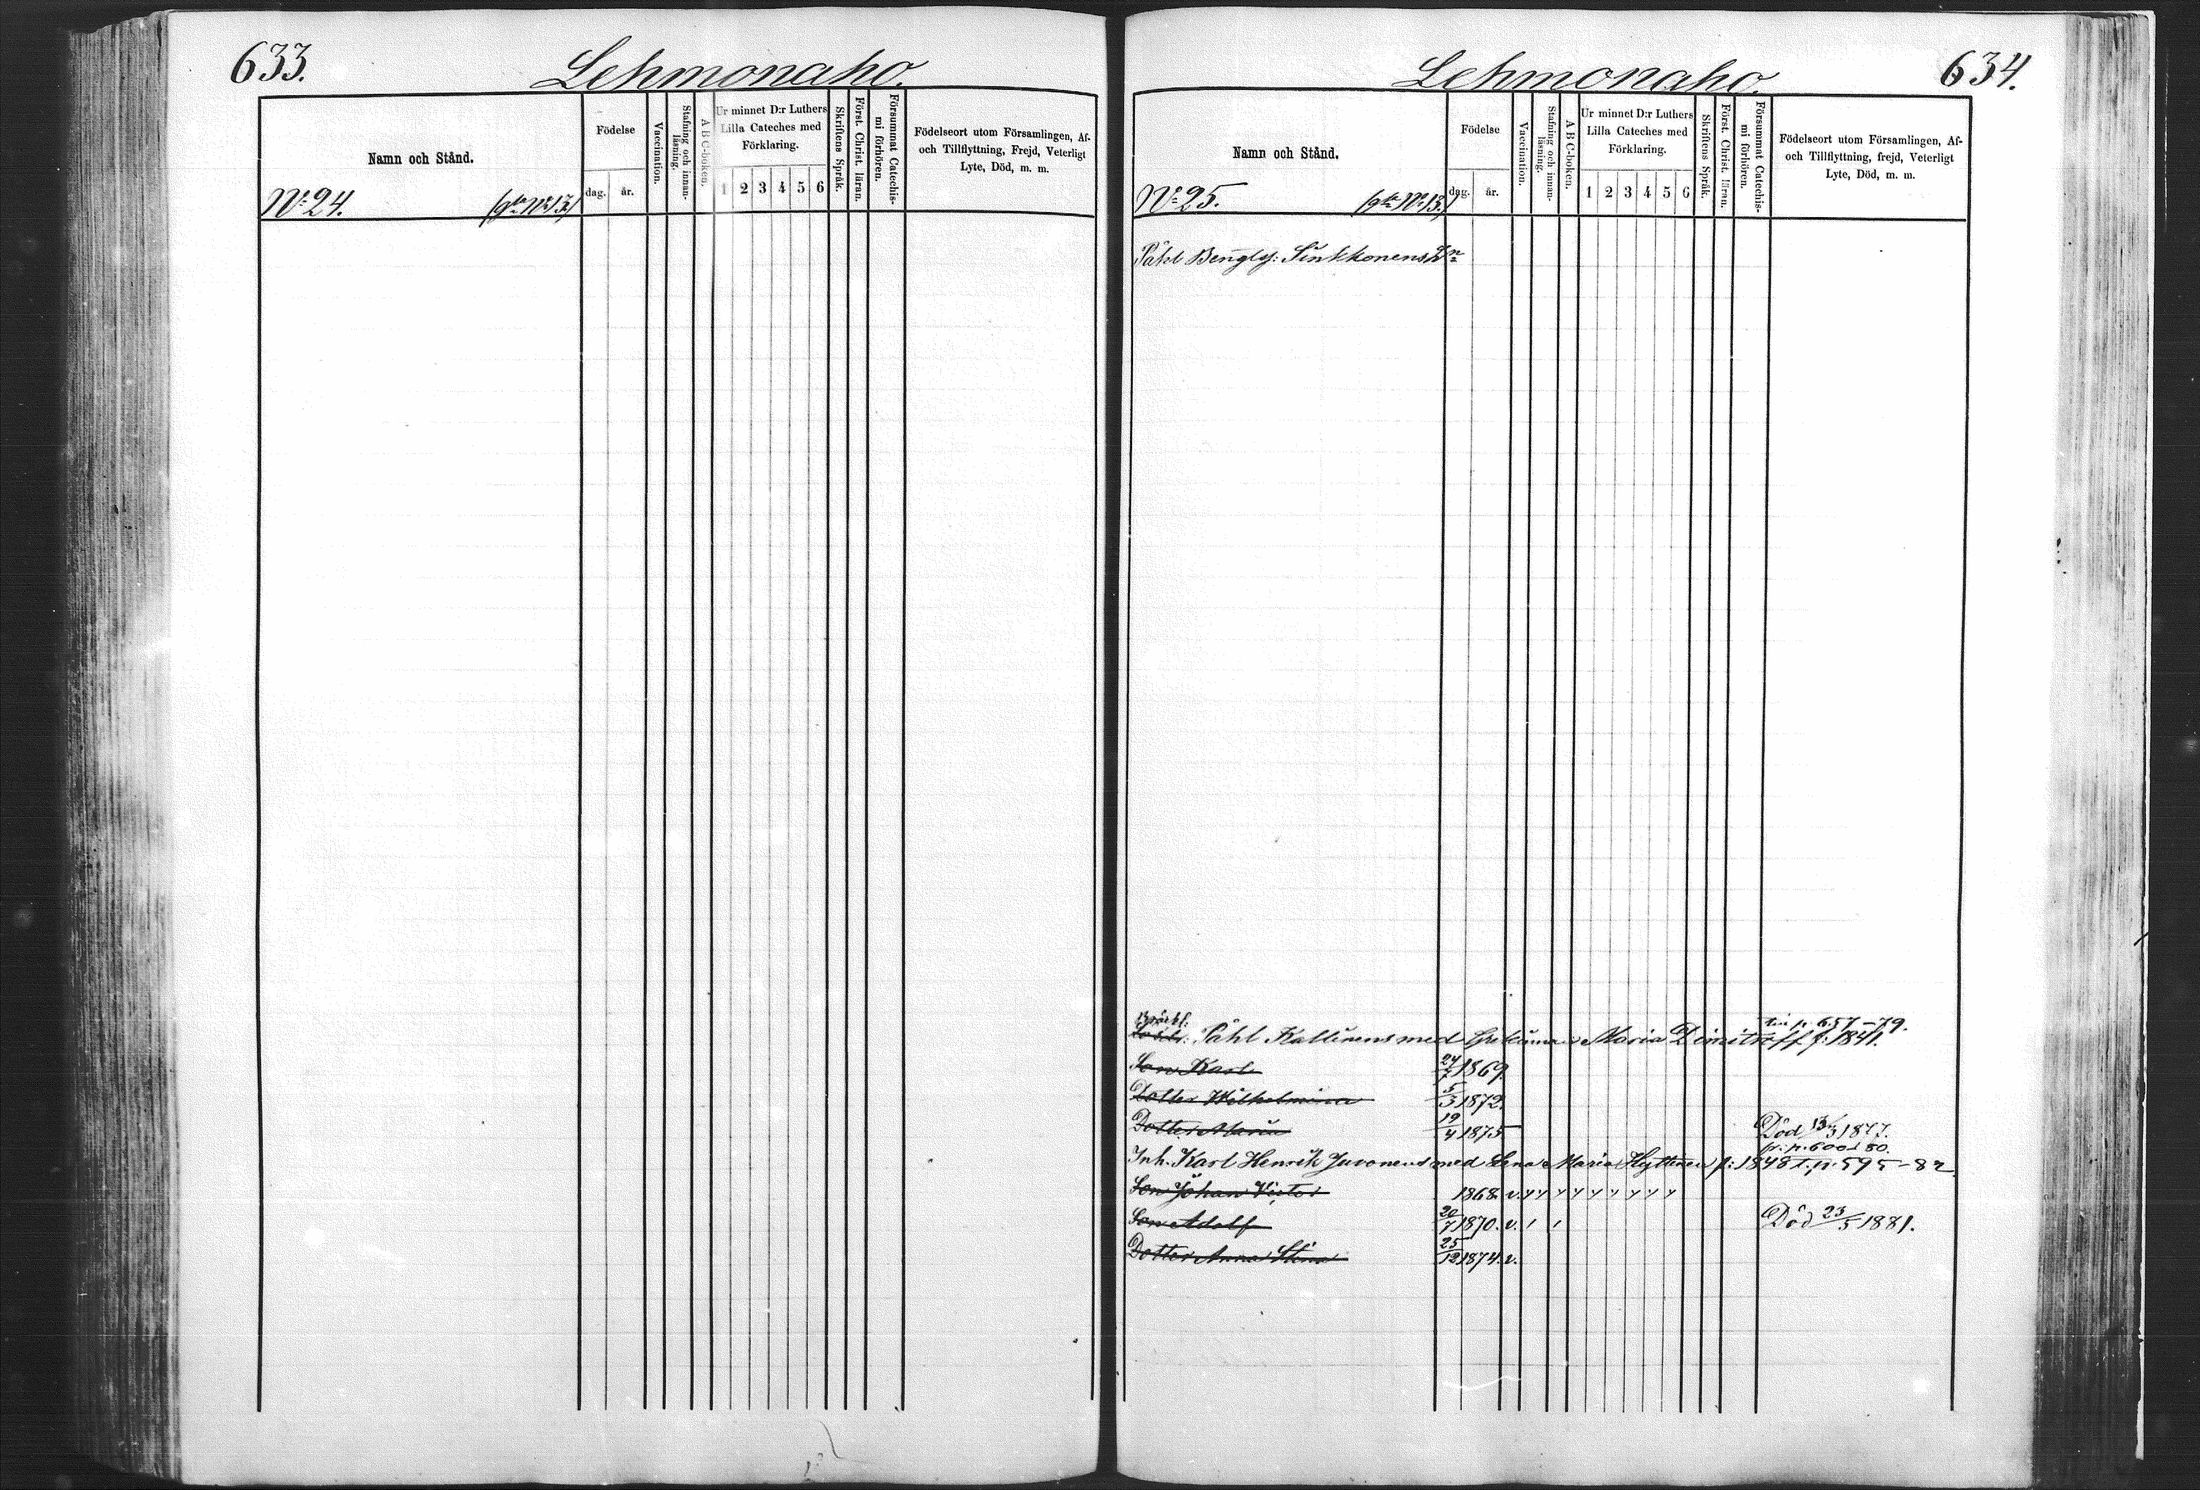 633.
Lehmonaho.
Namn och Stånd.
Födelse
dag.
år.
Vaccination.
Stafning och innan-
läsning.
A B C-boken.
Ur minnet D:r Luthers
Lilla Cateches med
Förklaring.
1 2 3 4 5 6
Skriftens Språk.
Först. Christ. läran.
Försummat Catechis-
mi förhören.
Födelseort utom Församlingen, Af-
och Tillflyttning, Frejd, Veterligt
Lyte, Död, m. m.
No 24.
634.
Lehmonaho.
Namn och Stånd.
Födelse
dag.
år.
Vaccination.
Stafning och innan-
läsning.
A B C-boken.
Ur minnet D:r Luthers
Lilla Cateches med
Förklaring.
1 2 3 4 5 6
Skriftens Språk.
Först. Christ. läran.
Försummat Catechis-
mi förhören.
Födelseort utom Församlingen, Af-
och Tillflyttning, frejd, Veterligt
Lyte, Död, m. m.
No 25.
Påhl Bengtss: Sinkkonens
p. 657-79.
Påhl Kallinens med Maria Dimitroff f: 1841.
Son Karl 24/7 1869.
Dotter Wilhelmina 5/5 1872.
Dotter Maria 19/4 1875 Död 13/3 1877.
Inh. Karl Henrik Juvonens med Lena Maria Hyttinen f: 1848 t. p. 595-82
Son Johan Victor 1868. v.
Son Adolf 20/7 1870. v. Död 23/5 1881.
Dotter Anna Stina 25/12 1874. v.